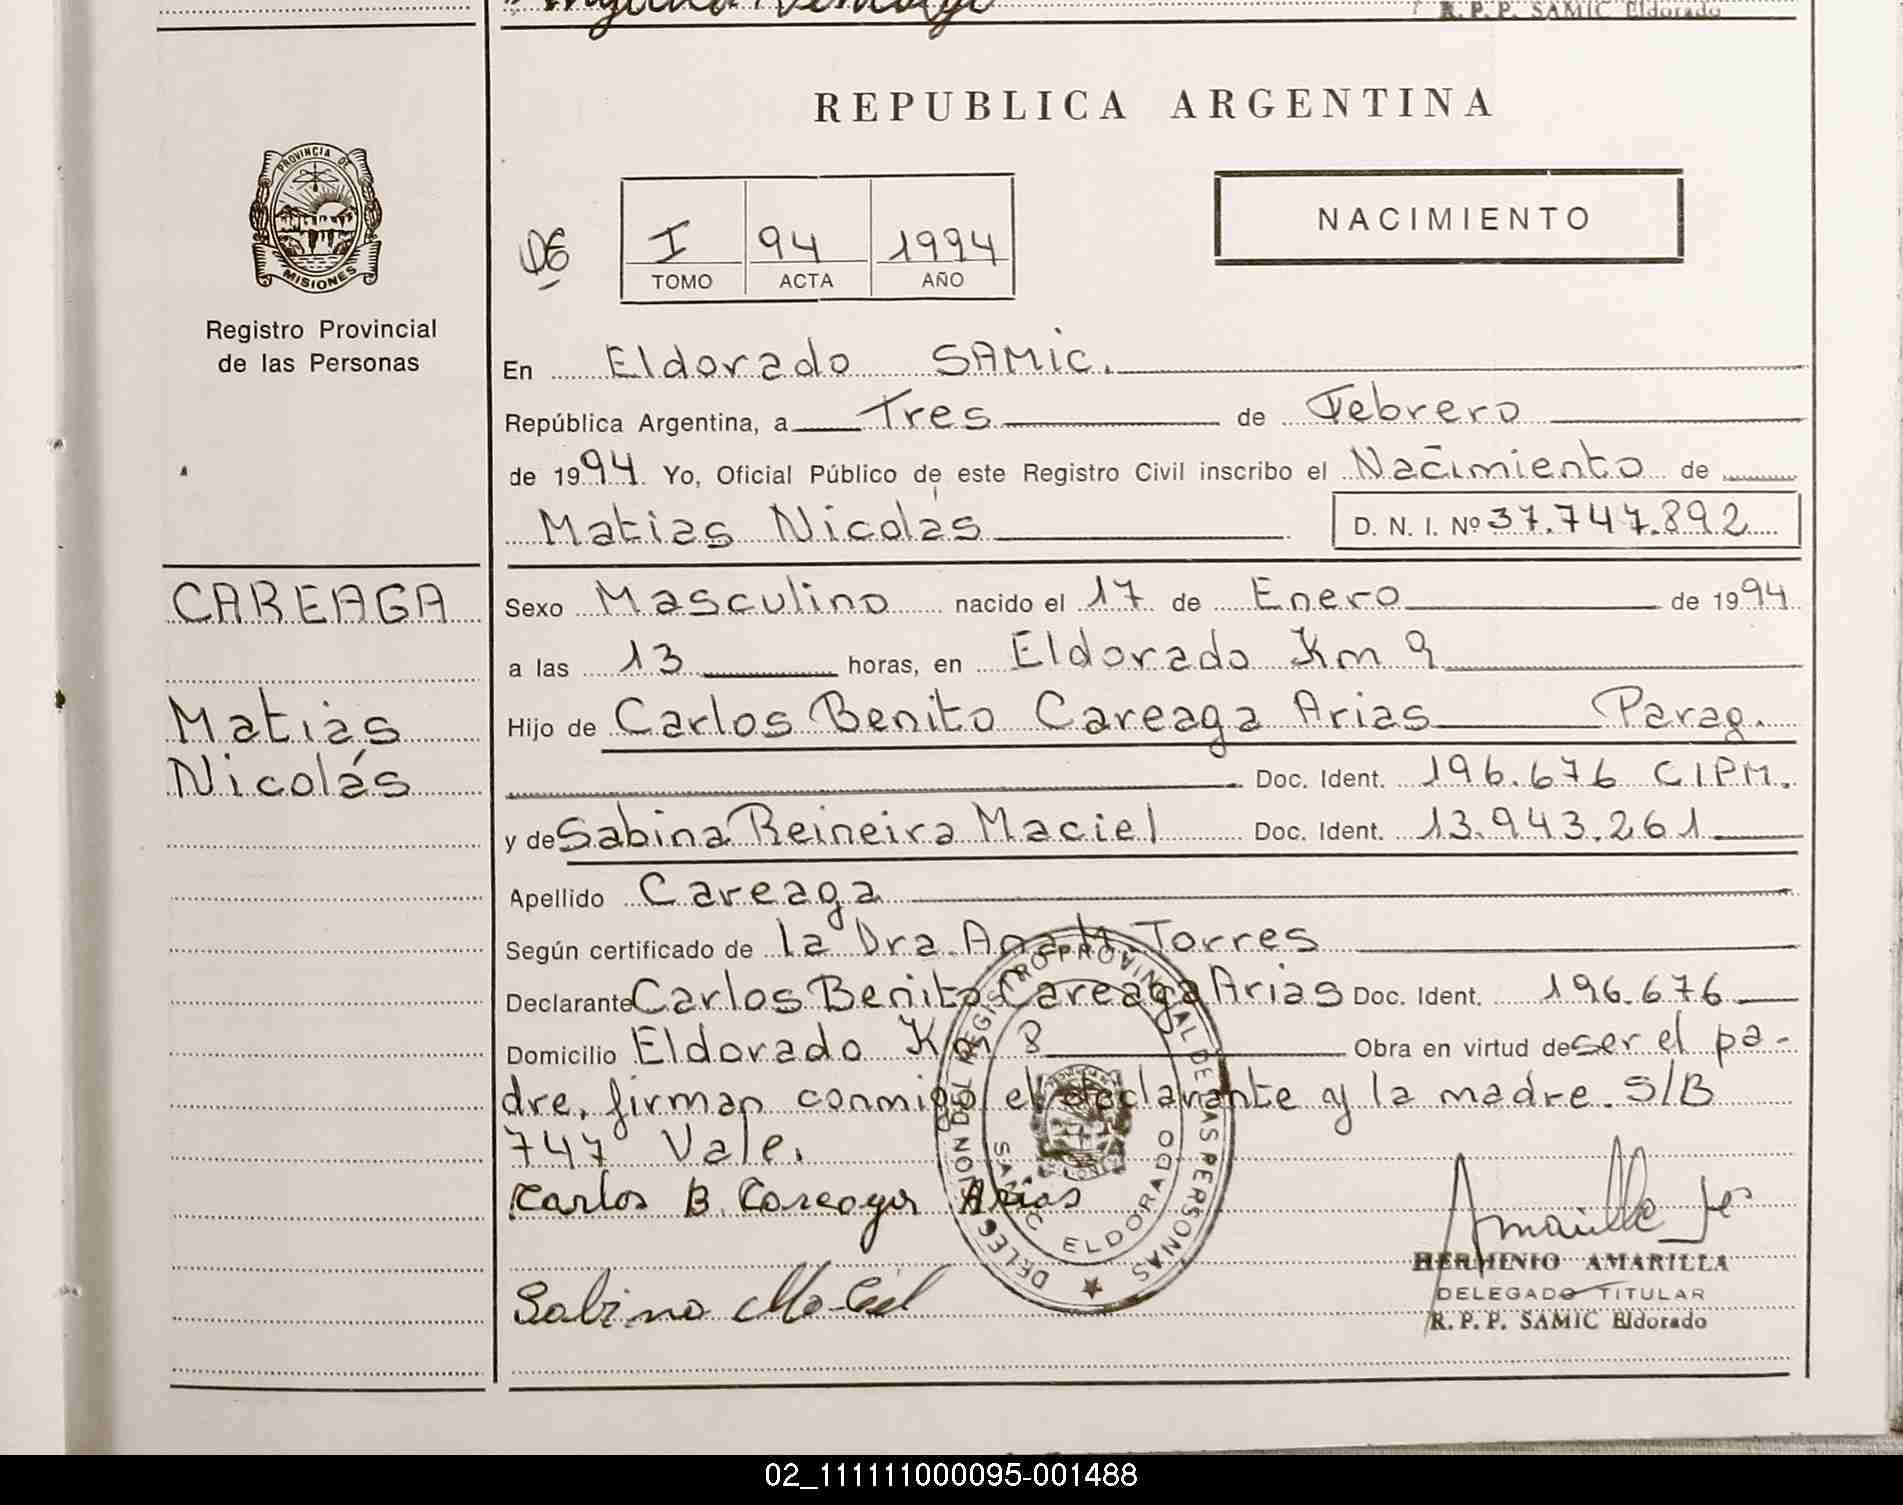 R. P. P. SAMIC Eldorado
REPUBLICA ARGENTINA
PROVINCIA DE
MISIONES
Registro Provincial
de las Personas
I 94 1994
TOMO ACTA AÑO
NACIMIENTO
En Eldorado SAMIC.
República Argentina, a Tres de Febrero
de 1994. Yo, Oficial Público de este Registro Civil inscribo el Nacimiento de
Matias Nicolás D. N. I. Nº 37.747.892
CAREAGA
Matías
Nicolás
Sexo Masculino nacido el 17 de Enero de 1994
a las 13 horas, en Eldorado Km 9
Hijo de Carlos Benito Careaga Arias Parag.
Doc. Ident. 196.676 CIPM.
y de Sabina Reineira Maciel Doc. Ident. 13.943.261
Apellido Careaga
Según certificado de la Dra. Ana M. Torres
Declarante Carlos Benito Careaga Arias Doc. Ident. 196.676
Domicilio Eldorado Km 8 Obra en virtud de ser el pa-
dre, firman conmigo el declarante y la madre. S/B
747 Vale.
Carlos B. Careaga Arias
Sabina Maciel
DELEGACION DEL REGISTRO PROVINCIAL DE LAS PERSONAS
SAMIC ELDORADO
HERMINIO AMARILLA
DELEGADO TITULAR
R. P. P. SAMIC Eldorado
02_111111000095-001488